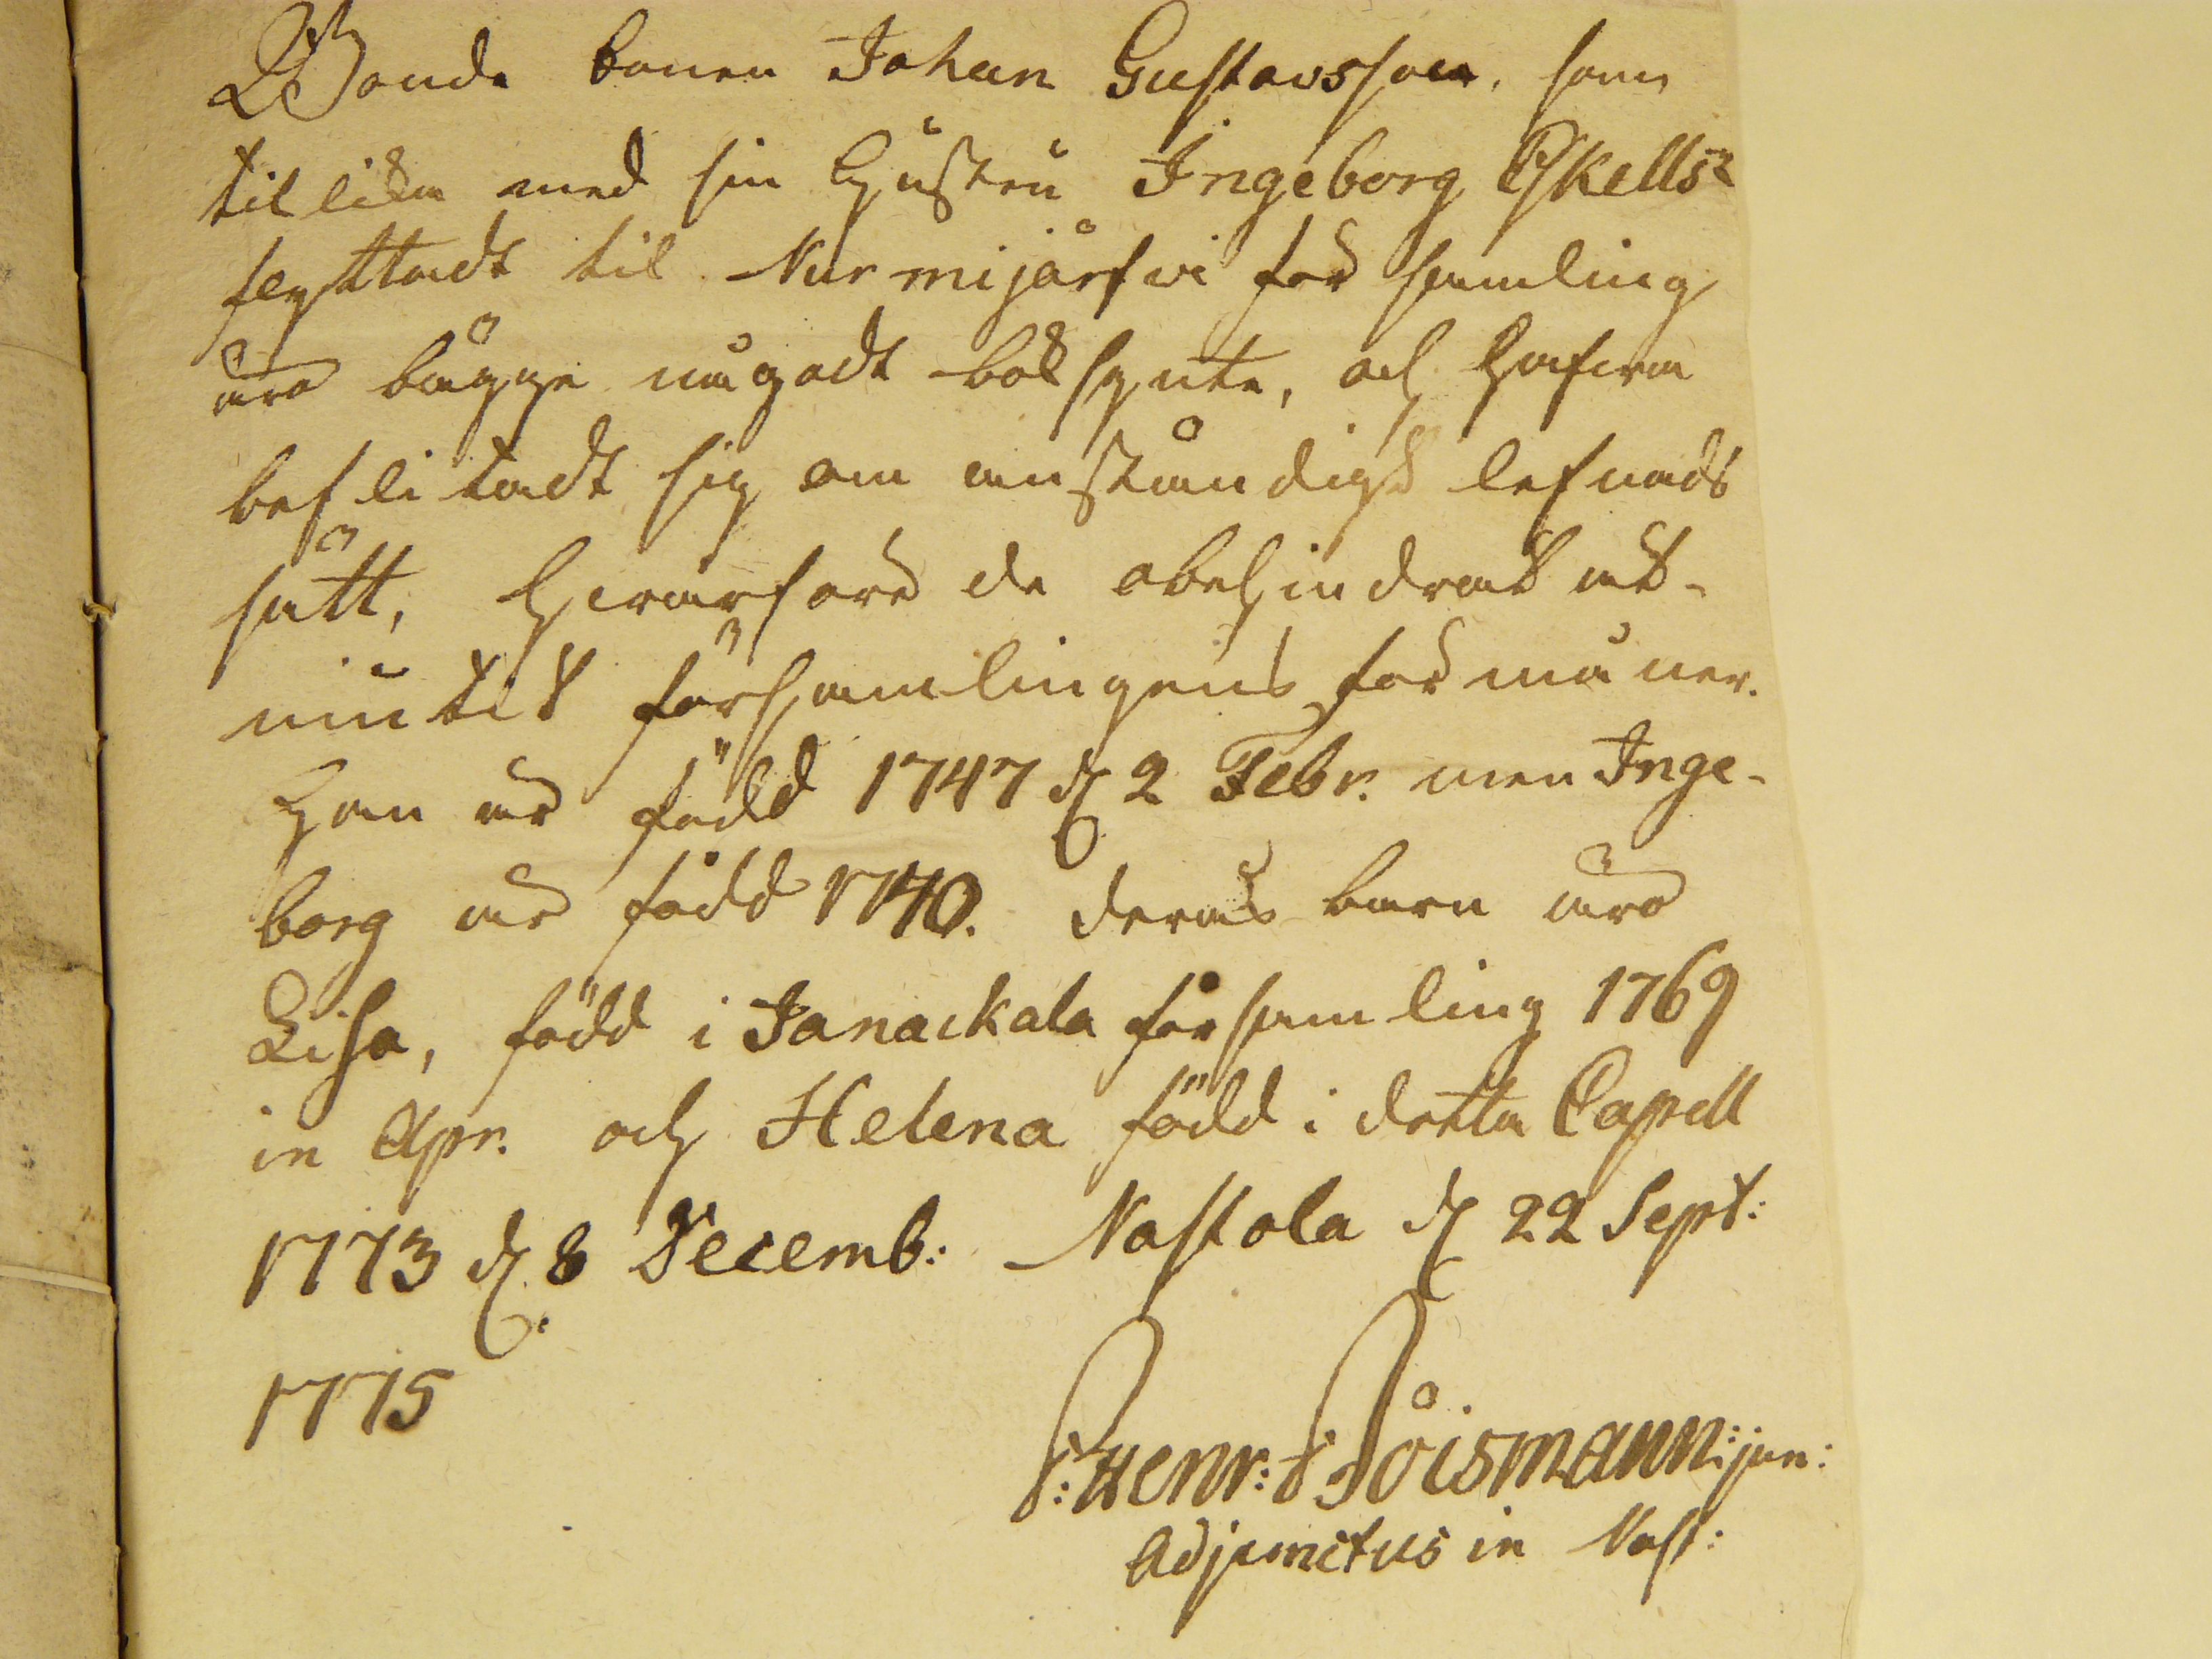 Bonde sonen Johan Gustavsson, som
tillika med sin Hustru Ingeborg Eskells
flyttadt til Nurmijärfwi församling
äro bägge någodt boksynte, och hafwa
beflitadt sig om anständigt lefnads
sätt, hwarföre de obehindrat åt-
niutit församlingens förmåner.
Han är född 1747 d. 2 Febr. men Inge-
borg är född 1740. Deras barn äro
Lisa, född i Janackala församling 1769
in Apr. och Helena född i detta Capell
1773 d. 8 Decemb: Nastola d. 22 Sept:
1775
Henr: jun:
Adjunctus in Nast: